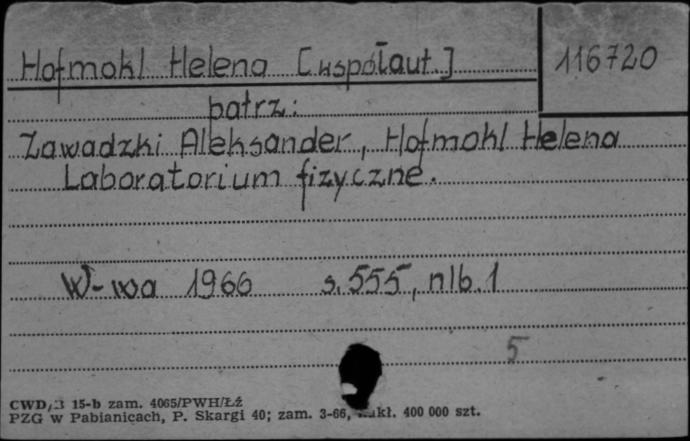 Hofmokl Helena [współaut.] 116720
patrz:
Zawadzki Aleksander, Hofmokl Helena
Laboratorium fizyczne.
W-wa 1966 s. 555, nlb. 1
5
CWD/3 15-b zam. 4065/PWH/Łź
PZG w Pabianicach, P. Skargi 40; zam. 3-66, nakł. 400 000 szt.